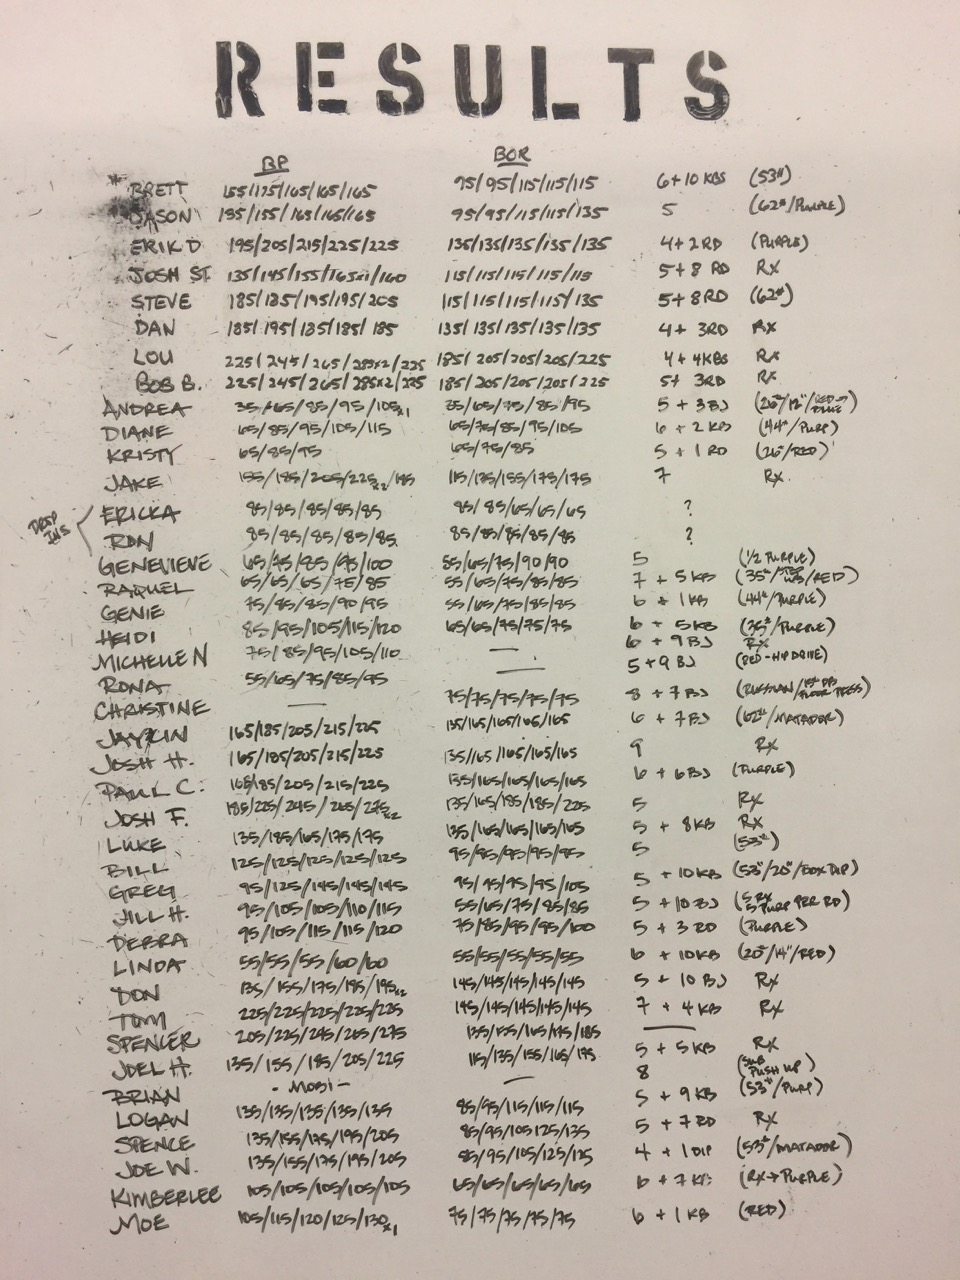 RESULTS
BP BOR
* BRETT 155/175/165/165/165 95/95/115/115/115 6+10 KBS (53#)
* JASON 135/155/165/165/165 95/95/115/115/135 5 (62#/PURPLE)
ERIK D 195/205/215/225/225 135/135/135/135/135 4+2 RD (PURPLE)
JOSH ST 135/145/155/165x1/160 115/115/115/115/115 5+8 RD RX
STEVE 185/185/195/195/205 115/115/115/115/135 5+8RD (62#)
DAN 185/195/185/185/185 135/135/135/135/135 4+ 3RD RX
LOU 225/245/265/285x2/225 185/205/205/205/225 4+4KBS RX
BOB B. 225/245/265/285x2/225 185/205/205/205/225 5+ 3RD RX
ANDREA 35/65/85/95/105x1 35/65/75/85/95 5 + 3BJ
DIANE 65/85/95/105/115 65/75/85/95/105 6 + 2 KB (44#/PURP)
KRISTY 65/85/95 65/75/85 5 + 1 RD (26#/RED)
JAKE 155/185/205/225x2/185 115/135/155/175/175 7 RX
DROP INS
ERICKA 85/85/85/85/85 85/85/65/65/65 ?
RON 85/85/85/85/85 85/85/85/85/85 ?
GENEVIEVE 65/75/85/95/100 55/65/75/90/90 5 (1/2 PURPLE)
RAQUEL 65/65/65/75/85 55/65/75/85/85 7 + 5 KB
GENIE 75/85/85/90/95 55/65/75/85/85 6 + 1KB (44#/PURPLE)
HEIDI 85/95/105/115/120 65/65/75/75/75 6 + 5KB (35#/PURPLE)
MICHELLE N 75/85/95/105/110 — 6 + 9 BJ RX
RONA 55/65/75/85/95 — 5+9 BJ (RED-HIP DRIVE)
CHRISTINE — 75/75/75/75/75 8 + 7 BJ
JAYKIN 165/185/205/215/225 135/165/165/165/165 6 + 7BJ (62#/MATADOR)
JOSH H. 165/185/205/215/225 135/165/165/165/165 9 RX
PAUL C. 165/185/205/215/225 135/165/165/165/165 6 + 6BJ (PURPLE)
JOSH F. 185/225/245/265/275x2 135/165/185/185/225 5 RX
LUKE 135/185/165/175/175 135/165/165/165/165 5 + 8KB RX
BILL 125/125/125/125/125 95/95/95/95/95 5 (53#)
GREG 95/125/145/145/145 95/95/95/95/105 5 + 10KB (53#/20"/BOX DIP)
JILL H. 95/105/105/110/115 55/65/75/85/85 5 + 10 BJ (5 RX 5 PURP PER RD)
DEBRA 95/105/115/115/120 75/85/95/95/100 5 + 3 RD (PURPLE)
LINDA 55/55/55/60/60 55/55/55/55/55 6 + 10KB (20#/14"/RED)
DON 135/155/175/195/195x2 145/145/145/145/145 5 + 10 BJ RX
TOM 225/225/225/225/225 145/145/145/145/145 7 + 4 KB RX
SPENCER 205/225/245/265/275 135/155/165/175/185 —
JOEL H. 135/155/185/205/225 115/135/155/165/175 5 + 5KB RX
BRIAN - MOBI - — 8 (SUB PUSH UP)
LOGAN 135/135/135/135/135 85/95/115/115/115 5 + 9 KB (53#/PURP)
SPENCE 135/155/175/195/205 85/95/105/125/135 5 + 7 RD RX
JOE W. 135/155/175/195/205 85/95/105/125/125 4 + 1 DIP (53#/MATADOR)
KIMBERLEE 105/105/105/105/105 65/65/65/65/65 6 + 7 KB (RX→PURPLE)
MOE 105/115/120/125/130x1 75/75/75/75/75 6 + 1 KB (RED)